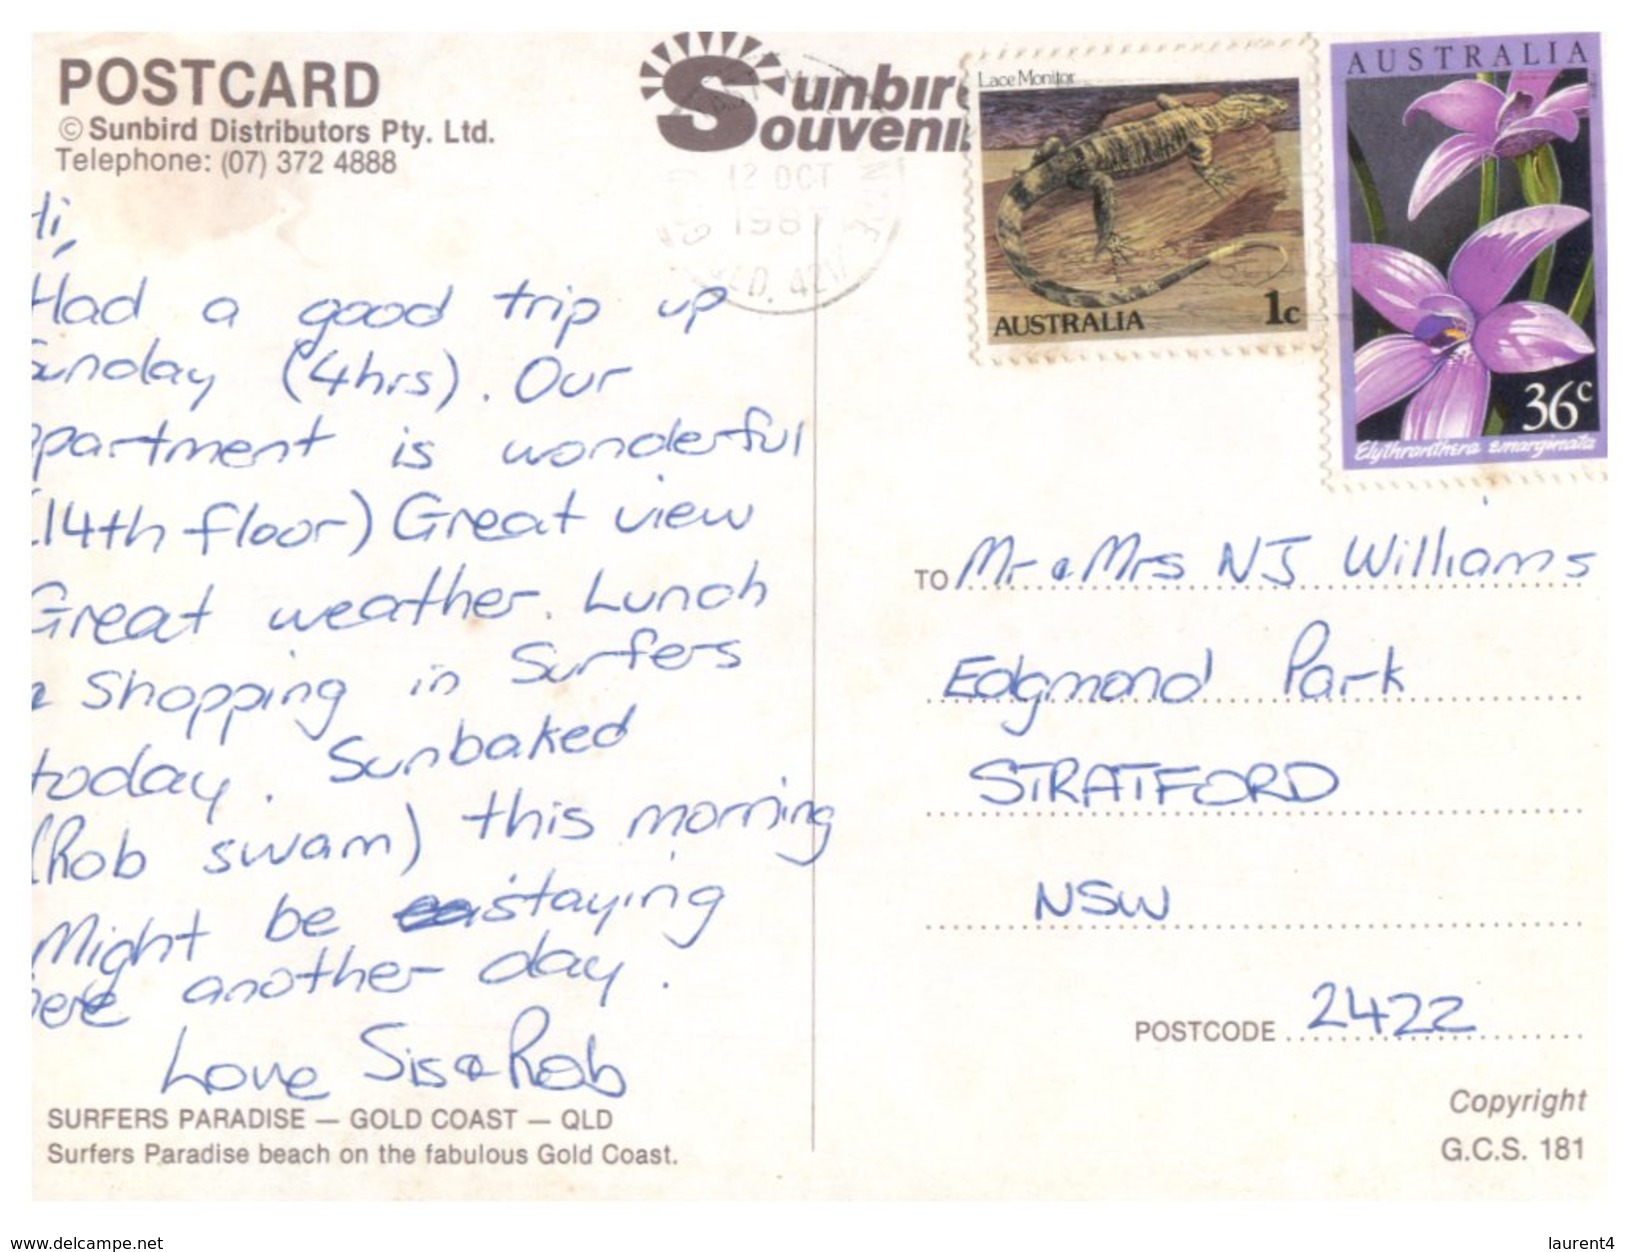 POSTCARD
© Sunbird Distributors Pty. Ltd.
Telephone: (07) 372 4888
Hi,
Had a good trip up
Sunday (4hrs). Our
apartment is wonderful
(14th floor) Great view
Great weather. Lunch
& Shopping in Surfers
today. Sunbaked
(Rob swam) this morning
Might be staying
here another day.
Love Sis & Rob
SURFERS PARADISE — GOLD COAST — QLD
Surfers Paradise beach on the fabulous Gold Coast.
Sunbird
Souveni
12 OCT
198
QLD. 421
Lace Monitor
AUSTRALIA 1c
AUSTRALIA
36c
Elythranthera emarginata
TO Mr & Mrs NJ Williams
Edgmond Park
STRATFORD
NSW
POSTCODE 2422
Copyright
G.C.S. 181
www.delcampe.net
laurent4